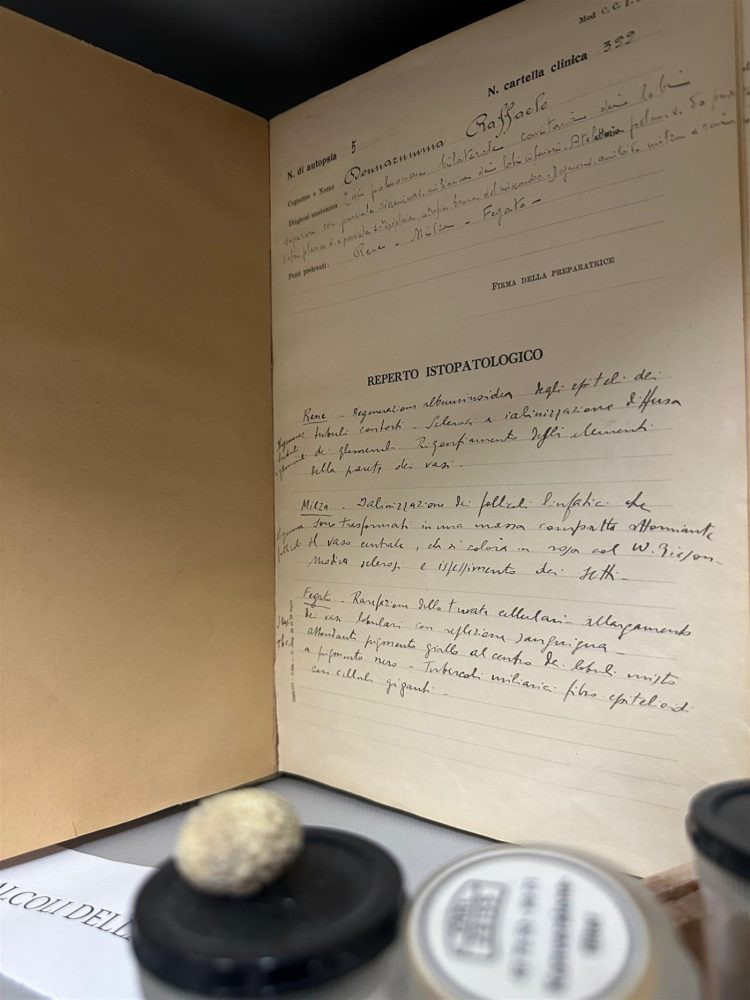 Mod. C. C.
N. cartella clinica 399
N. di autopsia 5
Cognome e Nome Donnarumma Raffaele
Diagnosi anatomica Tisi polmonare bilaterale cavitaria dei lobi
superiori con caseosi disseminata miliarica dei lobi inferiori. Atelettasia polm.
atrofia bruna del miocardio. Degeneraz. amiloide milza e reni
Pezzi prelevati: Rene - Milza - Fegato -
FIRMA DELLA PREPARATRICE
REPERTO ISTOPATOLOGICO
Rene - Degenerazione albuminoidea degli epiteli dei
tubuli contorti - Sclerosi e ialinizzazione diffusa
dei glomeruli. Rigonfiamento degli elementi
della parete dei vasi.
Milza - Ialinizzazione dei follicoli linfatici che
sono trasformati in una massa compatta attorniante
il vaso centrale, che si colora in rosa col W. Gieson -
Modica sclerosi e ispessimento dei setti -
Fegato - Rarefazione delle travate cellulari - allargamento
dei vasi lobulari con replezione sanguigna -
abbondante pigmento giallo al centro dei lobuli misto
a pigmento nero - Tubercoli miliarici fibro epitelioidi
con cellule giganti -
ALCOLI DELL